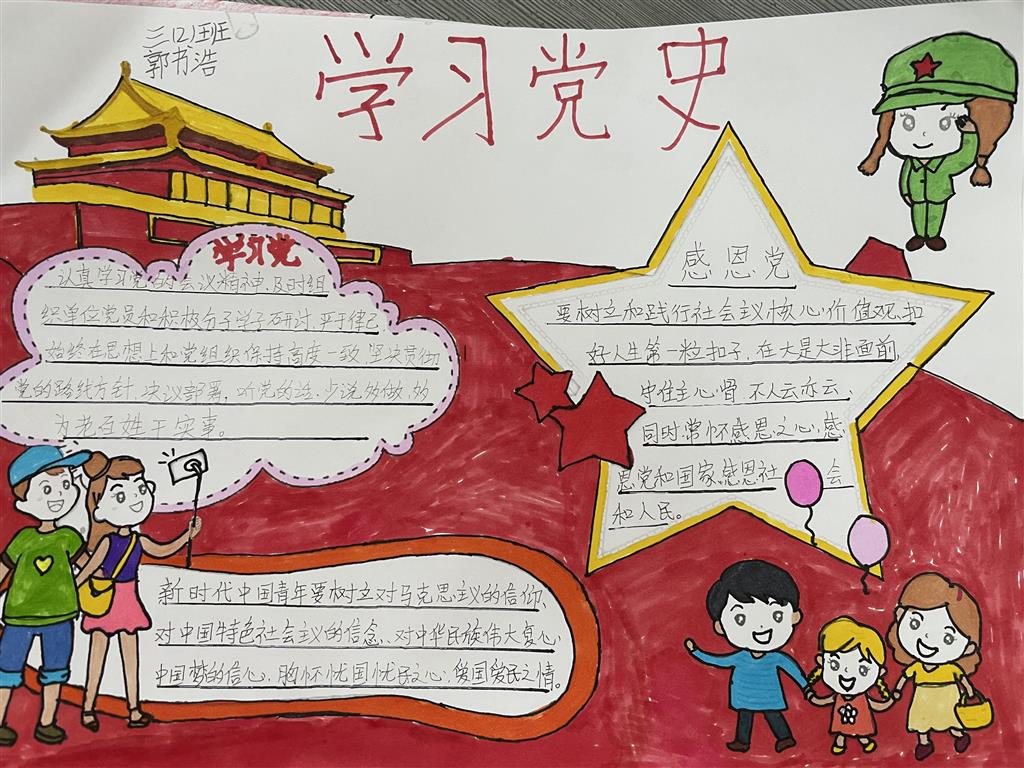 三(2)班
郭书浩
学习党史
学习党
认真学习党的会议精神,及时组
织单位党员和积极分子学子研讨,严于律己
始终在思想上和党组织保持高度一致,坚决贯彻
党的路线方针、决议部署,听党的话,少说多做,多
为老百姓干实事。
感恩党
要树立和践行社会主义核心价值观,扣
好人生第一粒扣子,在大是大非面前,
守住主心骨,不人云亦云,
同时,常怀感恩之心,感
恩党和国家,感恩社会
和人民。
新时代中国青年要树立对马克思主义的信仰、
对中国特色社会主义的信念、对中华民族伟大复兴
中国梦的信心,胸怀忧国忧民之心,爱国爱民之情。